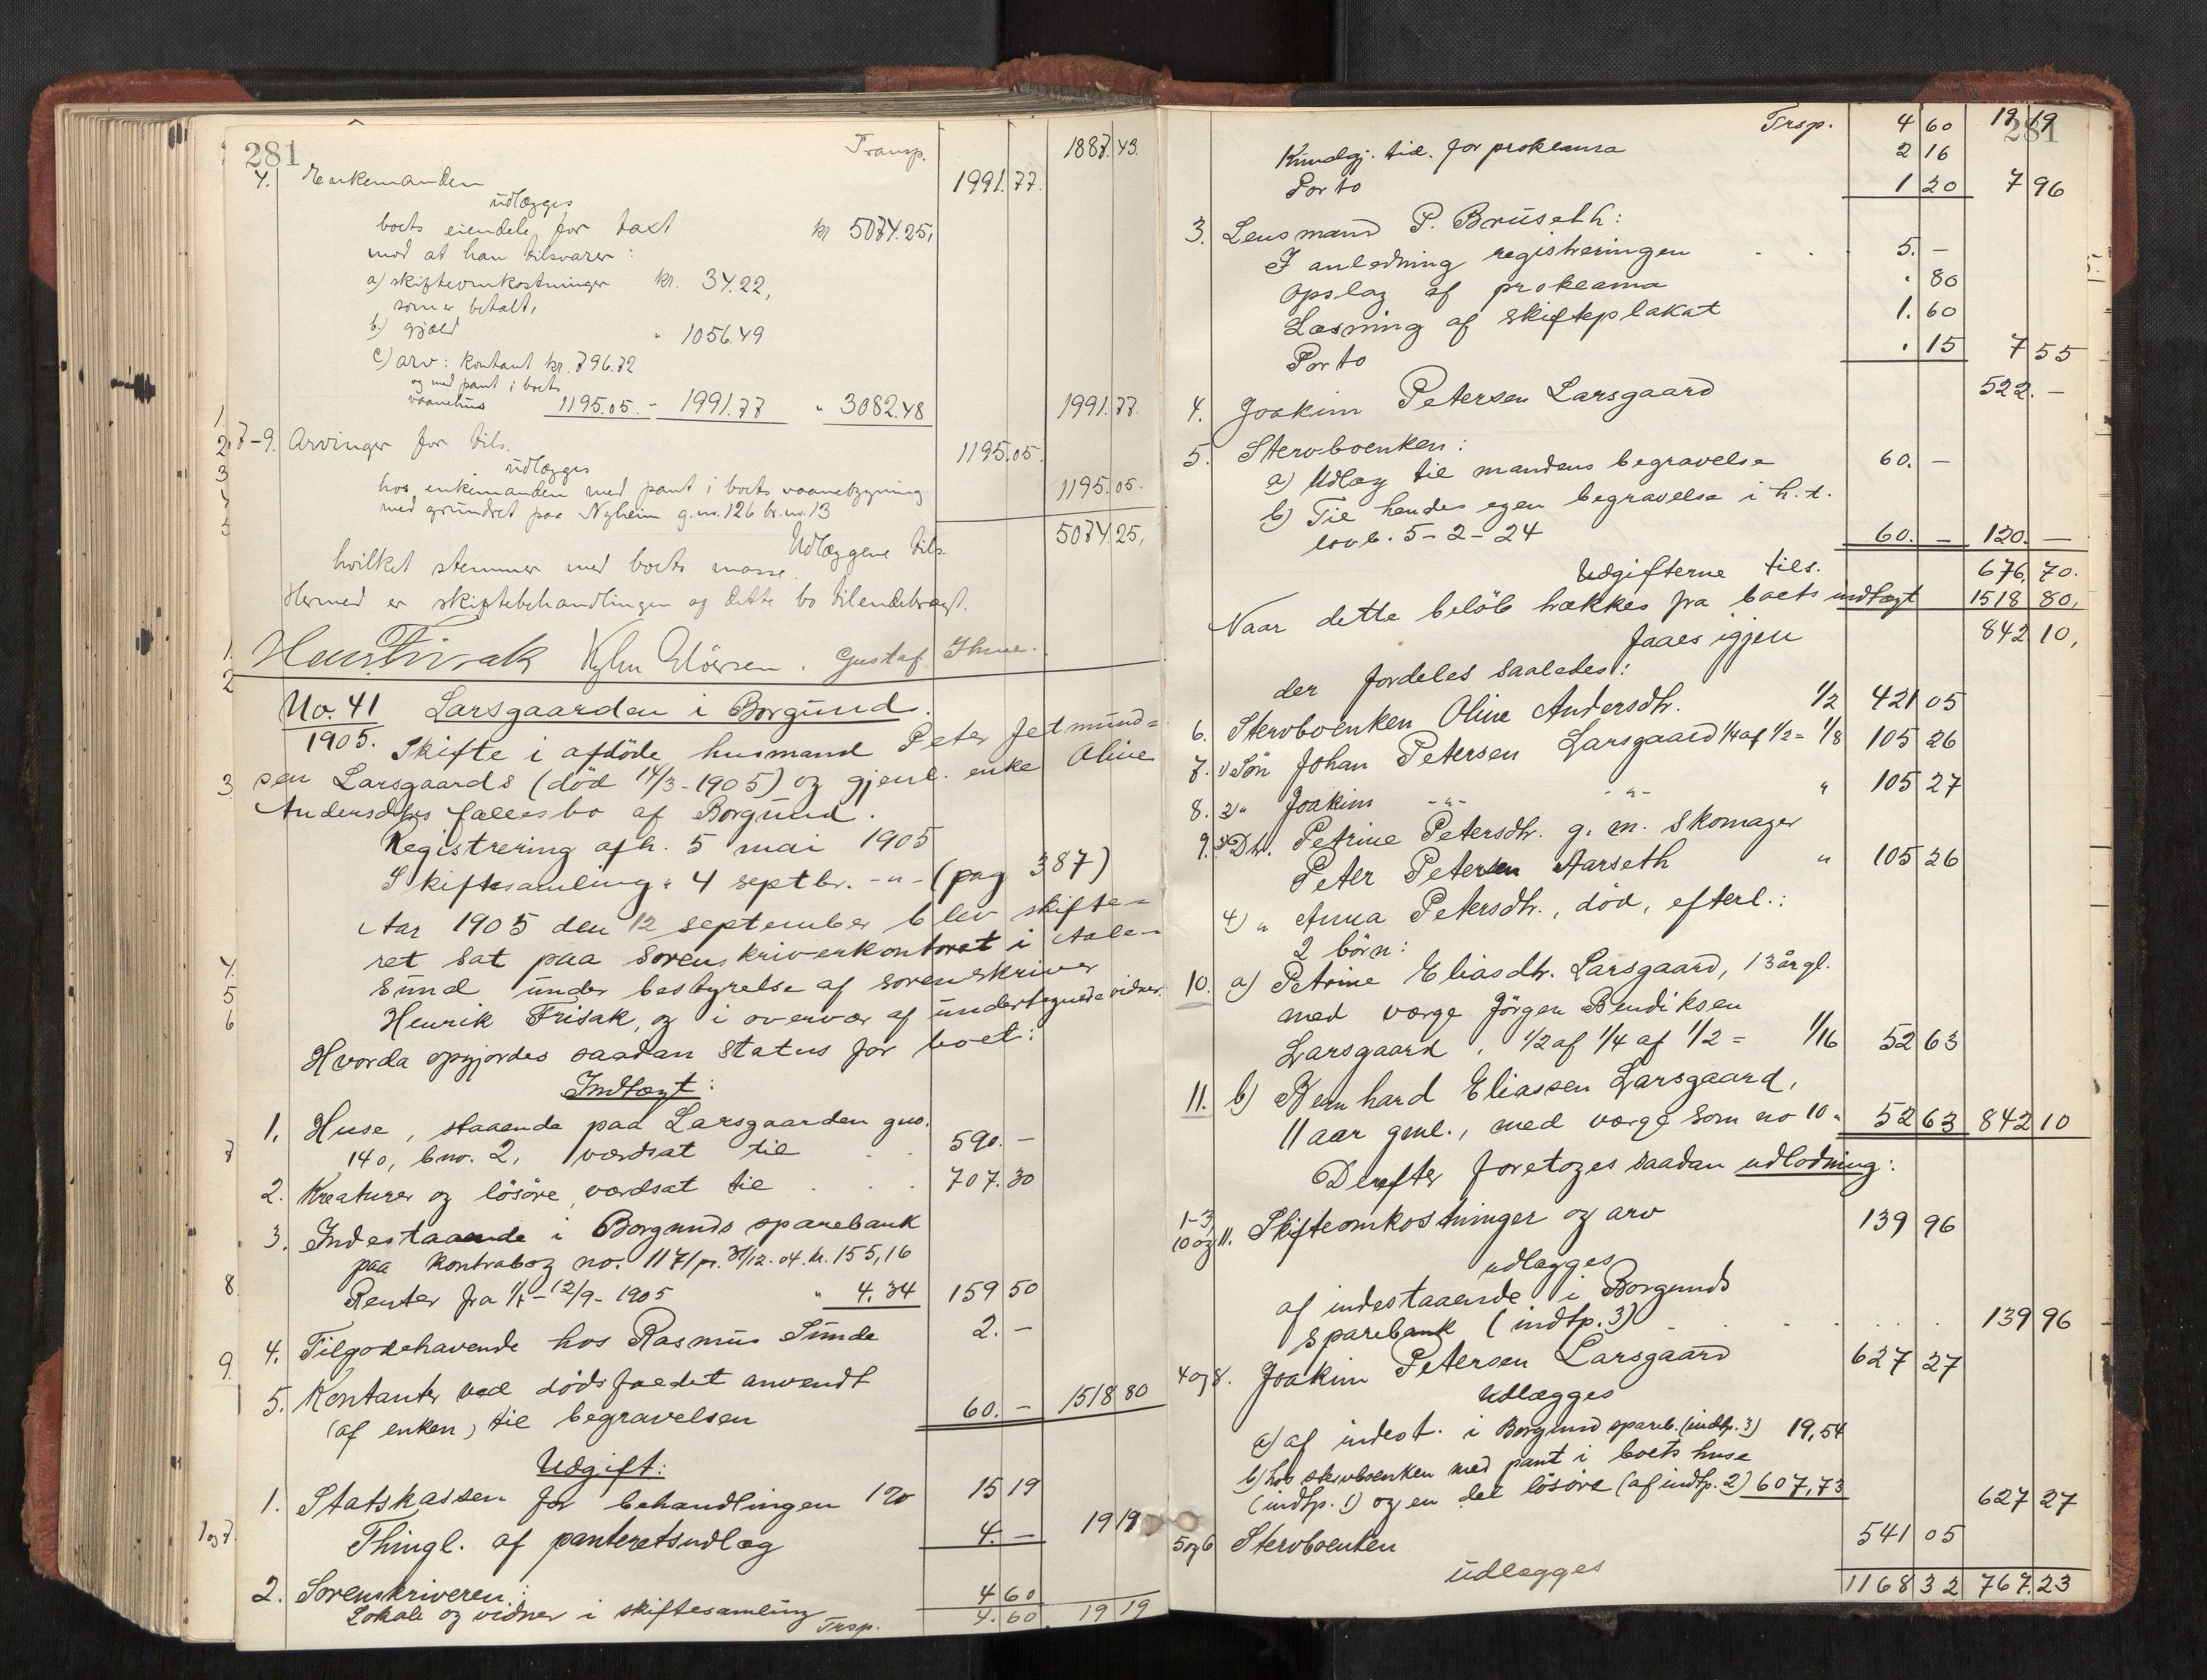 281
Transp. 1887.43.
4. Enkemanden 1991.77.
udlægges
boets eiendele for taxt kr 5074.25,
mod at han tilsvarer:
a) skifteomkostninger kr. 34.22,
som er betalt,
b) gjæld " 1056.49
c) arv: kontant kr. 796.72
og med pant i boets
vaanehus 1195.05. - 1991.77 " 3082.48 1991.77.
7-9. Arvinger for tils. 1195.05.
udlægges
hos enkemanden med pant i boets vaanebygning 1195.05.
med grundret paa Nyheim g.nr. 126 br.nr. 13
Udlæggene tils. 5074.25,
hvilket stemmer med boets masse.
Hermed er skiftebehandlingen og dette bo tilendebragt.
Henr Frisak Gustaf Ihme.
No. 41 Larsgaarden i Borgund.
1905. Skifte i afdöde husmand Peter Jetmund=
sen Larsgaards (död 14/3-1905) og gjenl. enke Oline
Andersdtrs fællesbo af Borgund.
Registrering afh. 5 mai 1905
Skiftesamling " 4 septbr. -"- (pag 387)
Aar 1905 den 12 september blev skifte=
ret sat paa sorenskriverkontoret i Aale=
sund under bestyrelse af sorenskriver
Henrik Frisak, og i overvær af undertegnede vidner.
Hvorda opgjordes saadan status for boet:
Indtægt:
1. Huse, staaende paa Larsgaarden gno.
140, bno. 2, værdsat til . . 590. -
2. Kreaturer og lösöre, værdsat til . . . 707.30
3. Indestaaende i Borgunds sparebank
paa kontrabog no. 1171 pr. 31/12-04 kr. 155,16
Renter fra 1/1 - 12/9 - 1905 " 4.34 159 50
4. Tilgodehavende hos Rasmus Sunde 2. -
5. Kontanter ved dödsfaldet anvendt
(af enken) til begravelsen 60. - 1518 80
Udgift:
1. Statskassen for behandlingen 1% 15 19
Thingl. af panteretsudlæg 4. - 19 19
2. Sorenskriveren:
Lokale og vidner i skiftesamling 4 60
Trsp. 4.60 19 19
281
Trsp. 4 60 19 19
Kundgj. tid. for proklama 2 16
Porto 1 20 7 96
3. Lensmand P. Bruseth:
I anledning registreringen . . . 5. -
Opslag af proklama . 80
Læsning af skifteplakat 1. 60
Porto . 15 7 55
4. Joakim Petersen Larsgaard 522. -
5. Stervboenken:
a) Udlæg til mandens begravelse 60. -
b) Til hendes egen begravelse i h.t.
lovb. 5-2-24 60. - 120. -
Udgifterne tils. 676,70.
Naar dette belöb trækkes fra boets indtægt 1518 80,
faaes igjen 842 10,
der fordeles saaledes:
6. Stervboenken Oline Andersdtr. 1/2 421 05
7. 1) Sön Johan Petersen Larsgaard 1/4 af 1/2 = 1/8 105 26
8. 2) " Joakim -"- -"- " 105 27
9. 3) Dtr. Petrine Petersdtr. g. m. skomager
Peter Petersen Aarseth " 105 26
4) " Anna Petersdtr., död, efterl.:
2 börn:
10. a) Petrine Eliasdtr. Larsgaard, 13 årgl.
med værge Jörgen Bendiksen
Larsgaard, 1/2 af 1/4 af 1/2 = 1/16 52 63
11. b) Bernhard Eliassen Larsgaard,
11 aar gml., med værge som no 10 " 52 63 842 10
Derefter foretoges saadan udlodning:
1-3, 10 og 11. Skifteomkostninger og arv 139 96
udlægges
af indestaaende i Borgunds
sparebank (indtp. 3) . . . . . 139 96
4 og 8. Joakim Petersen Larsgaard 627 27
Udlægges
a) af indest. i Borgund spareb. (indtp. 3) 19,54
b) hos stervboenken med pant i boets huse
(indtp. 1) og en del lösöre (af indtp. 2) 607,73 627 27
5 og 6 Stervboenken 541 05
udlægges
1168 32 767.23